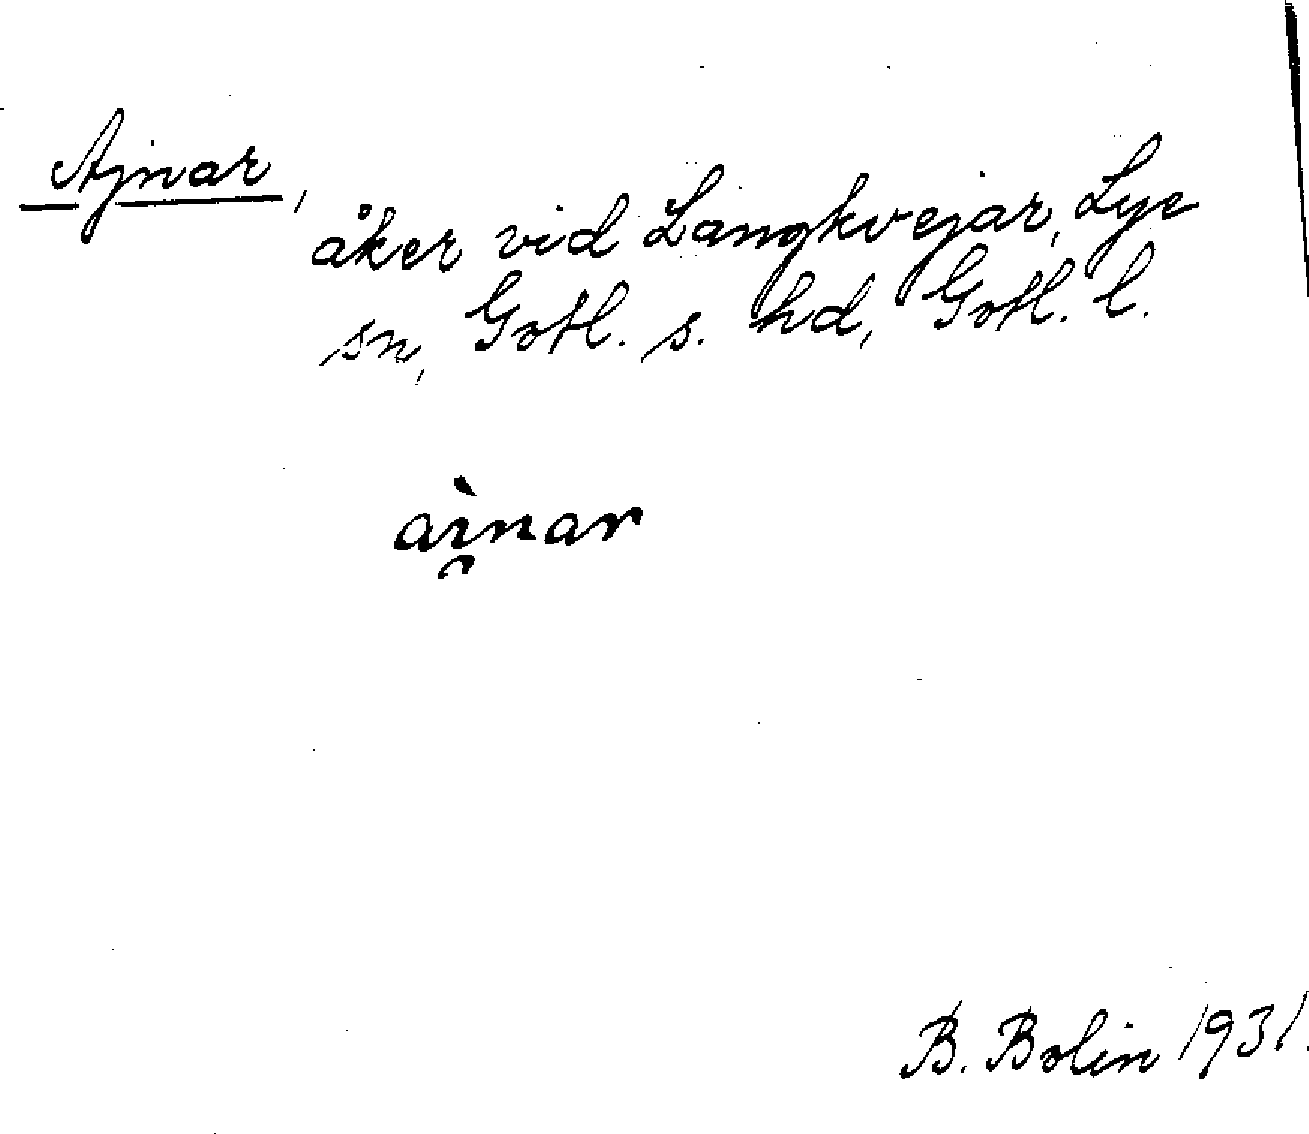 Ajnar,
åker vid Langkvejar, Lye
sn, Gotl. s. hd, Gotl. l.
ai̯nar
B. Bolin 1931.